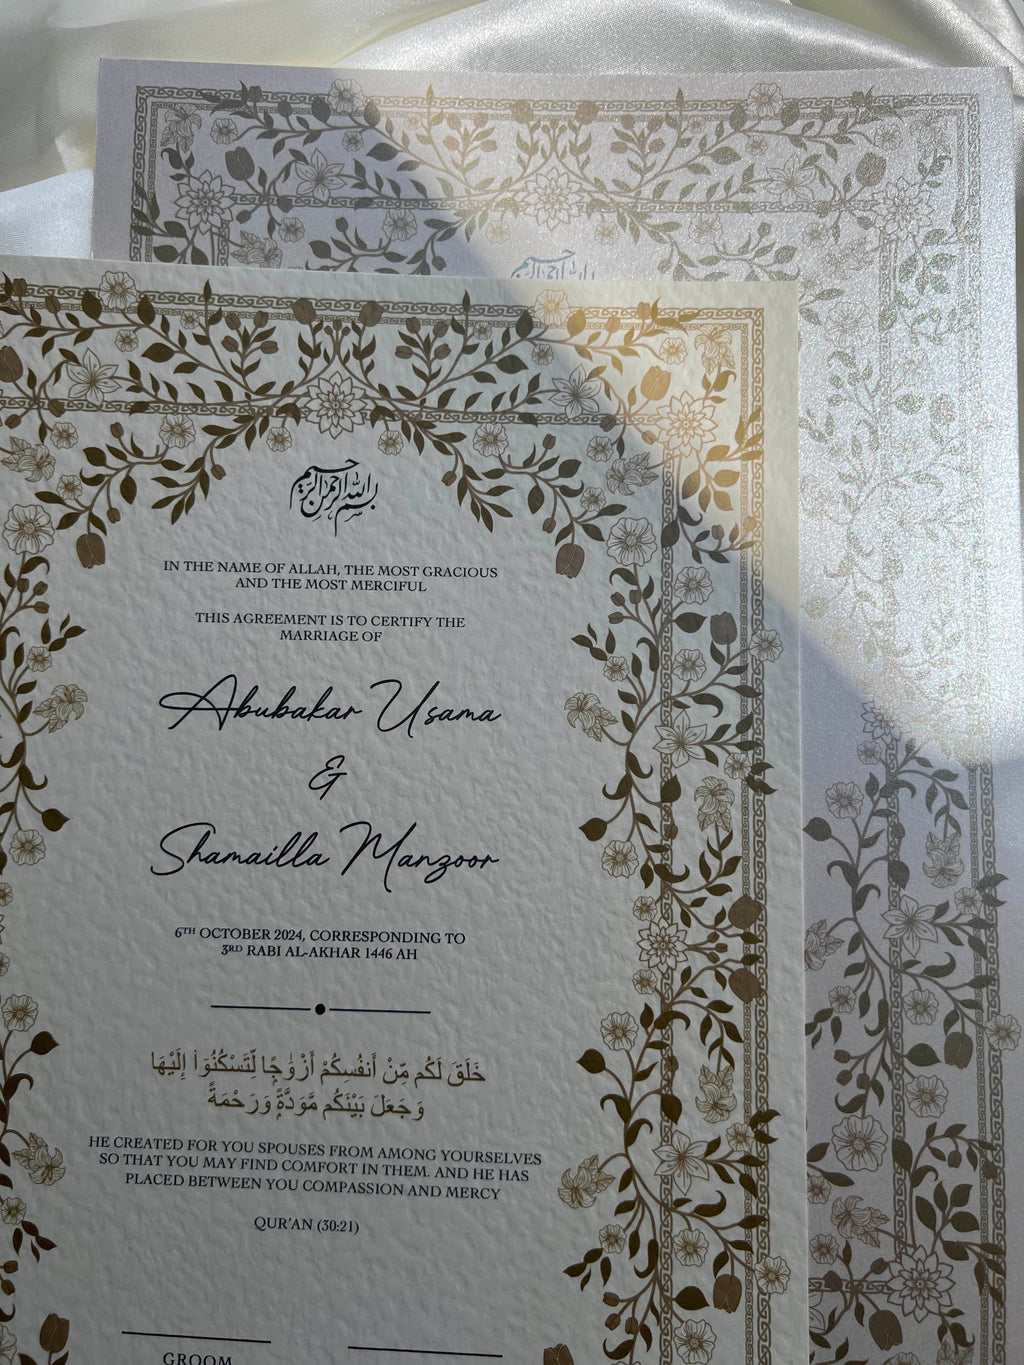 بسم الله الرحمن الرحيم
بسم الله الرحمن الرحيم
IN THE NAME OF ALLAH, THE MOST GRACIOUS
AND THE MOST MERCIFUL
THIS AGREEMENT IS TO CERTIFY THE
MARRIAGE OF
Abubakar Usama
&
Shamailla Manzoor
6TH OCTOBER 2024, CORRESPONDING TO
3RD RABI AL-AKHAR 1446 AH
خَلَقَ لَكُم مِّنْ أَنفُسِكُمْ أَزْوَٰجًا لِّتَسْكُنُوٓا۟ إِلَيْهَا
وَجَعَلَ بَيْنَكُم مَّوَدَّةً وَرَحْمَةً
HE CREATED FOR YOU SPOUSES FROM AMONG YOURSELVES
SO THAT YOU MAY FIND COMFORT IN THEM. AND HE HAS
PLACED BETWEEN YOU COMPASSION AND MERCY
QUR'AN (30:21)
GROOM